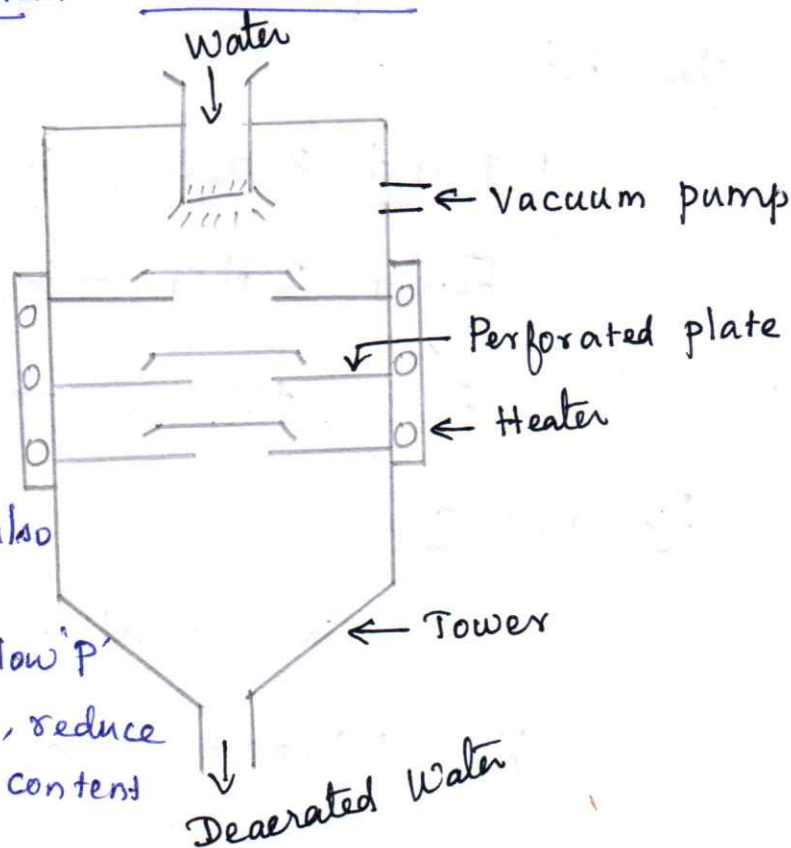 Water
← Vacuum pump
Perforated plate
← Heater
also
← Tower
low 'P'
, reduce
content
Deaerated Water